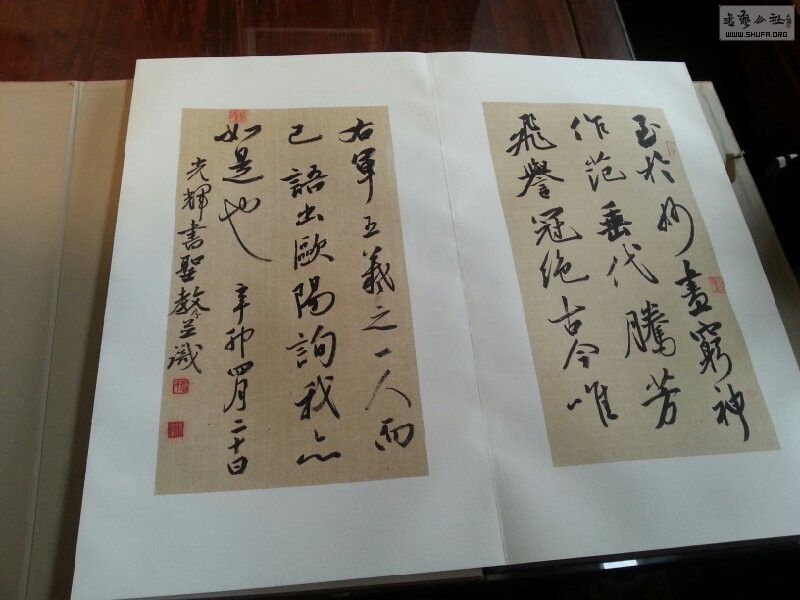 至於妙畫窮神
作范垂代騰芳
飛譽冠絶古今唯
右軍王羲之一人而
已語出歐陽詢我亦
如是也 辛卯四月二十日
光輝書聖教並識
書藝公社
WWW.SHUFA.ORG